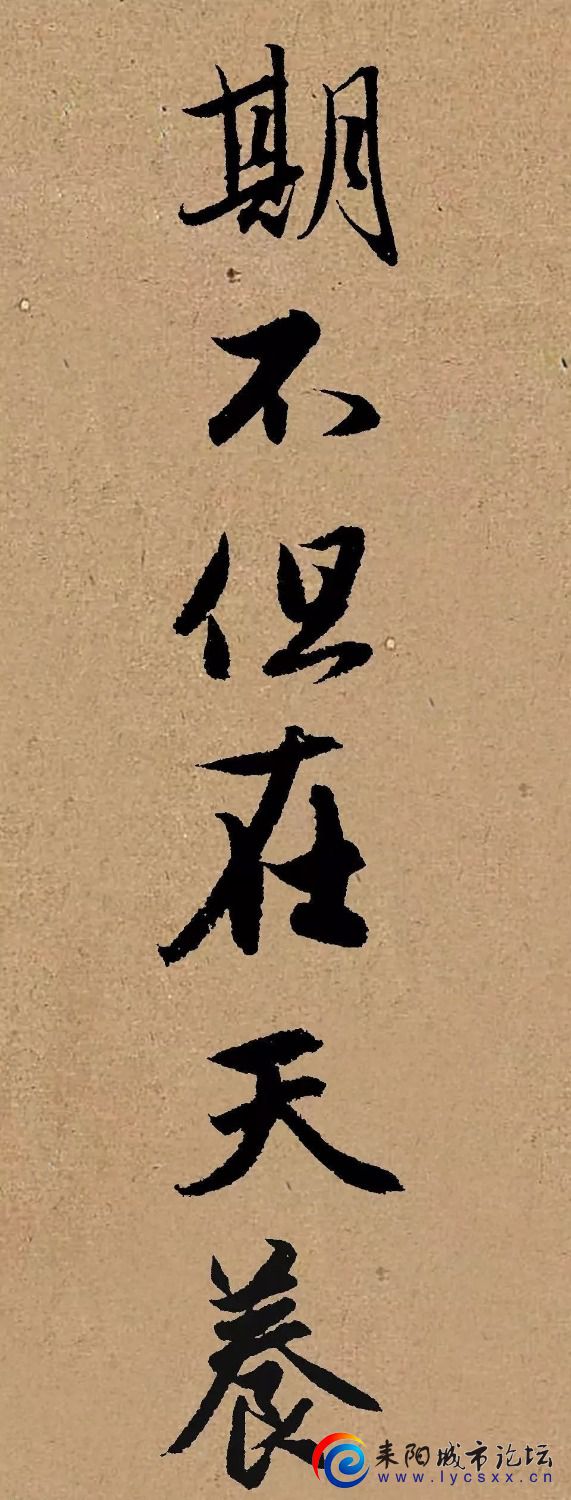 期不但在天養
耒阳城市论坛
www.lycsxx.cn